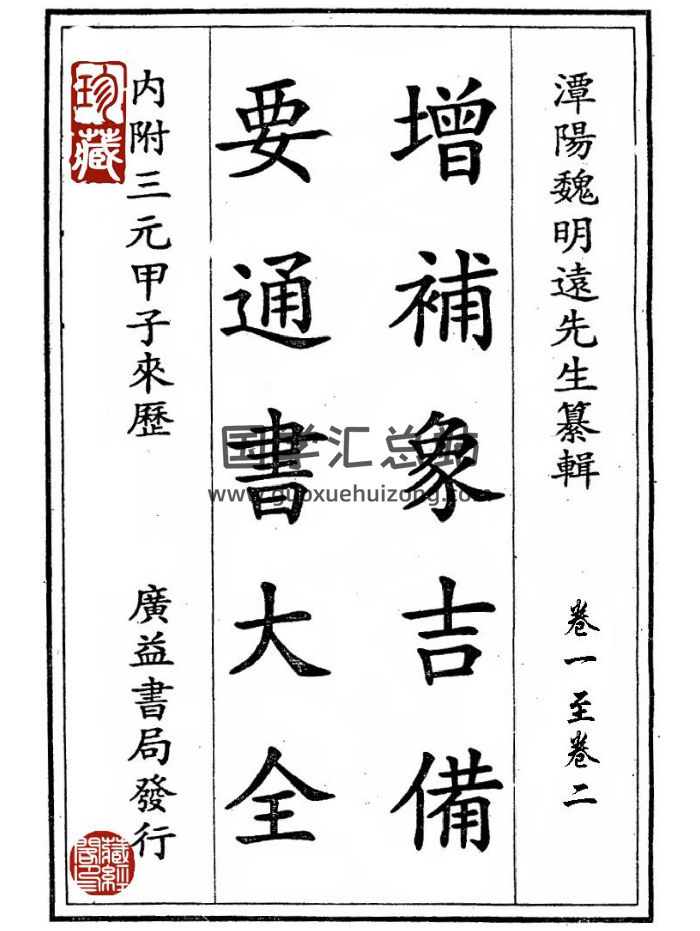 潭陽魏明遠先生纂輯
卷一至卷二
增補象吉備
要通書大全
內附三元甲子來歷
廣益書局發行
珍藏
藏經閣印
国学汇总站
www.guoxuehuizong.com